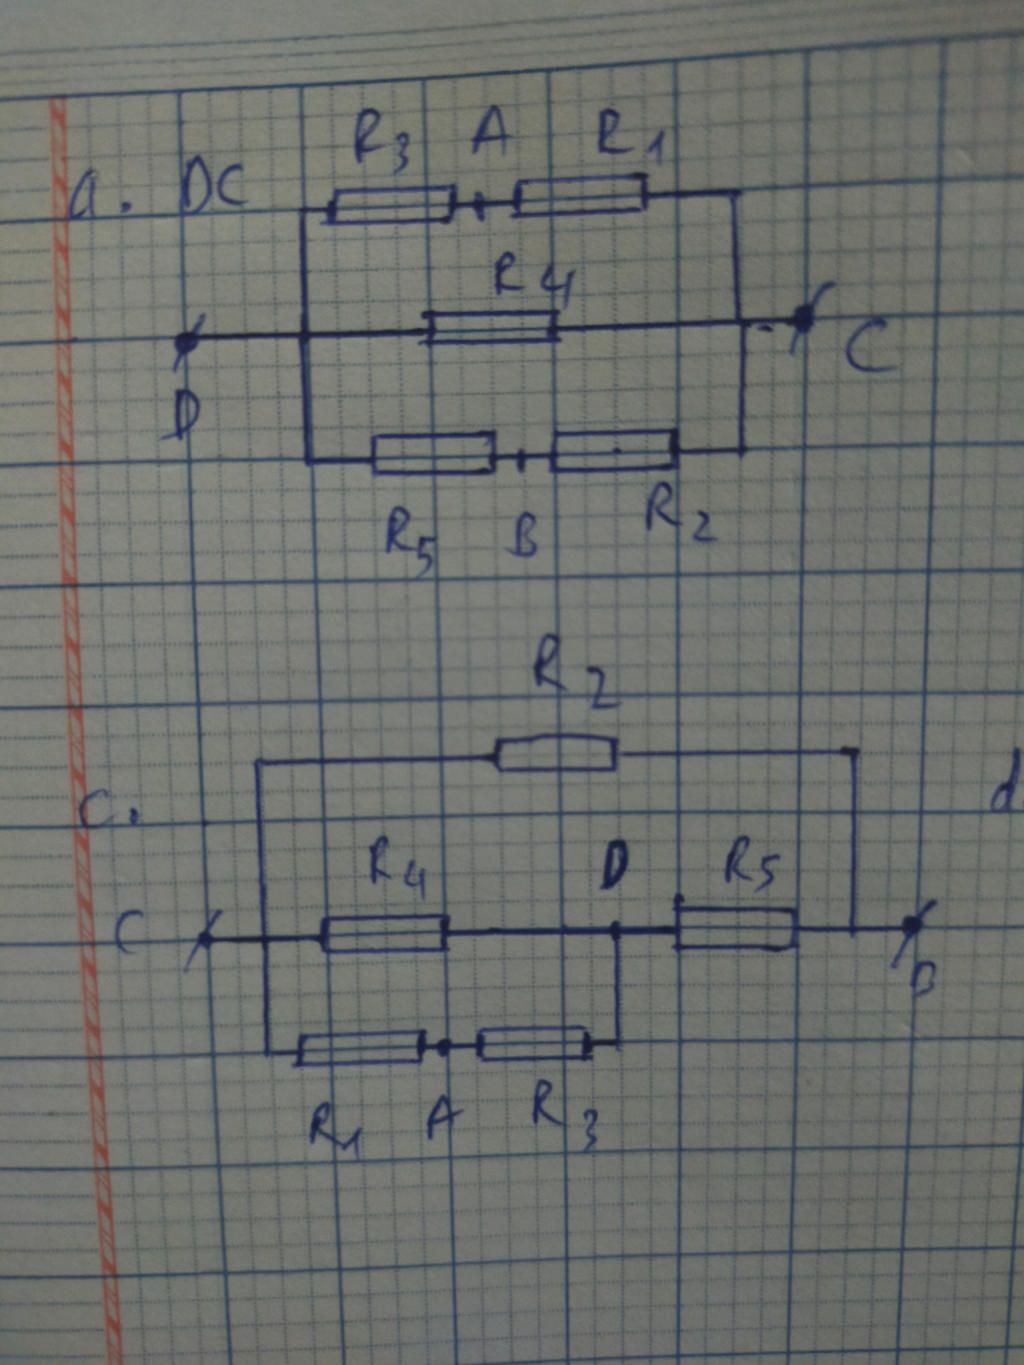 R3 A R1
a. DC
R4
D
C
R5 B R2
R2
c.
d
R4 D R5
C
B
R1 A R3